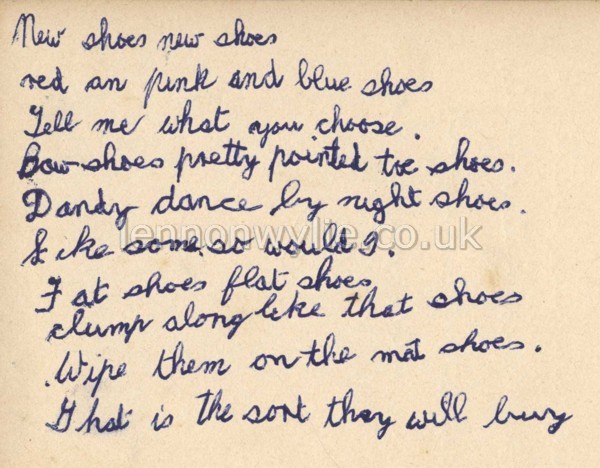 New shoes new shoes
red an pink and blue shoes
Tell me what you choose.
Bow shoes pretty pointed toe shoes.
Dandy dance by night shoes.
Like some so would I.
lennonwylie.co.uk
Fat shoes flat shoes
clump along like that shoes
Wipe them on the mat shoes.
That is the sort they will buy